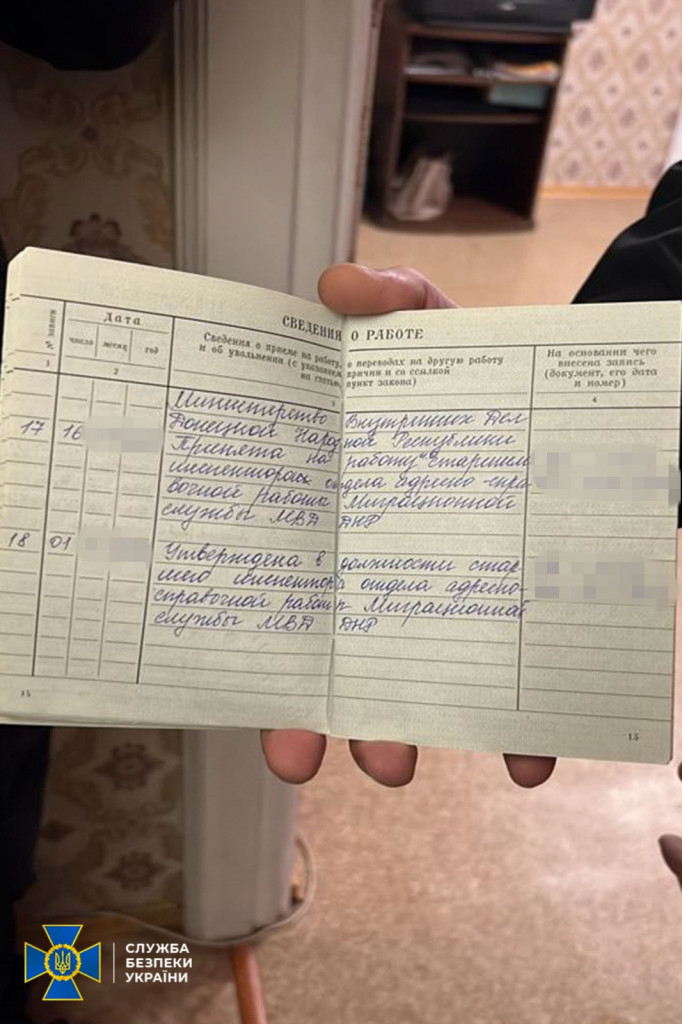 СВЕДЕНИЯ О РАБОТЕ
№ записи
Дата
число месяц год
Сведения о приеме на работу, о переводах на другую работу
и об увольнении (с указанием причин и со ссылкой
на статью, пункт закона)
На основании чего
внесена запись
(документ, его дата
и номер)
1 2 3 4
Министерство Внутренних Дел
17 16 Донецкой Народной Республики
Принята на работу "Старшим
инспектором отдела адресно-спра
вочной работы Миграционной
службы МВД ДНР
18 01 Утверждена в должности стар
шего инспектора отдела адресно-
справочной работы Миграционной
службы МВД ДНР
14 15
СЛУЖБА
БЕЗПЕКИ
УКРАЇНИ